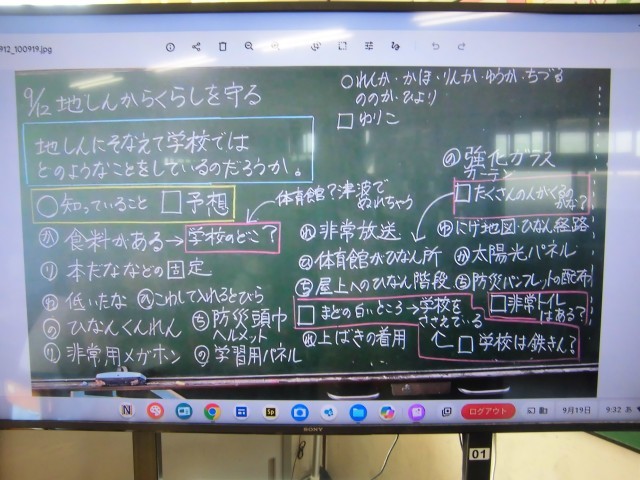 912_100919.jpg
9/12 地しんからくらしを守る
○れんか・かほ・りんか・ゆうか・ちづる
ののか・ひより
□ゆりこ
地しんにそなえて学校では
どのようなことをしているのだろうか。
○知っていること □予想
体育館?津波で
ぬれちゃう
の 強化ガラス
カーテン
□たくさんの人がくるの
かな?
か 食料がある→学校のどこ?
れ 非常放送
ゆ にげ地図・ひなん経路
り 本だななどの固定
体育館がひなん所
か 太陽光パネル
れ 低いたな ひ こわして入れるとびら
ち 屋上へのひなん階段
ち 防災パンフレットの配布
の ひなんくんれん
ち 防災頭巾
ヘルメット
□まどの白いところ→学校を
ささえている
□非常トイレ
はある?
り 非常用メガホン
の 学習用パネル
れ 上ばきの着用
□学校は鉄きん?
ログアウト
9月19日
9:32
SONY
01